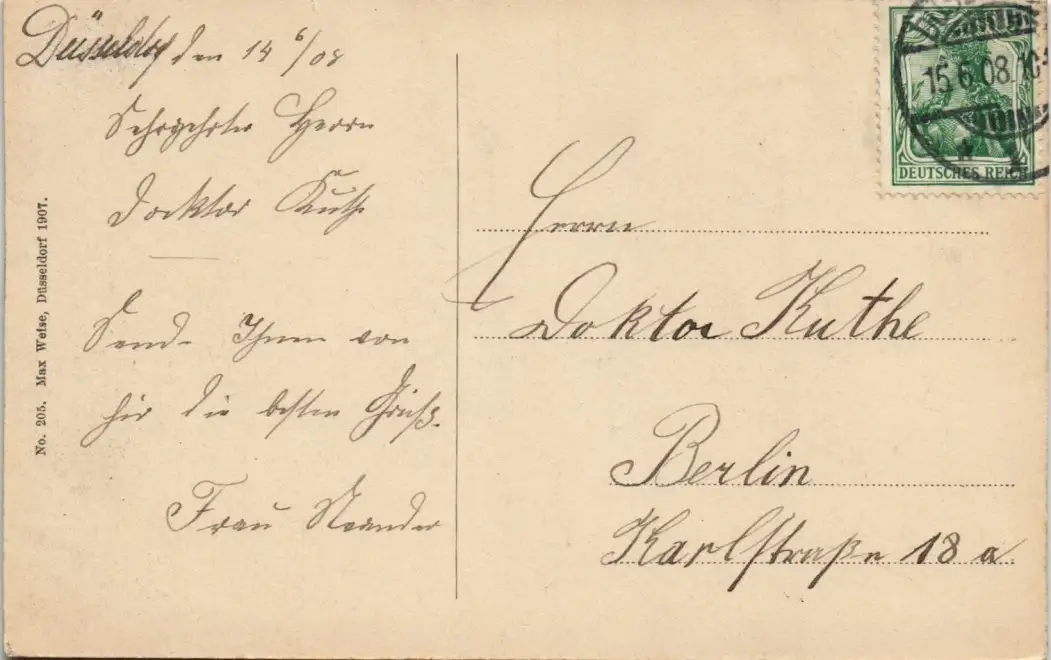 Düsseldorf den 14 6/08
Sehrgehrter Herrn
Doktor Kuthe
Sende Ihnen von
hir die besten Grüße.
Frau
No. 205. Max Weise, Düsseldorf 1907.
15.6.08.10
DEUTSCHES REICH
Herrn
Doktor Kuthe
Berlin
Karlstraße 18 a